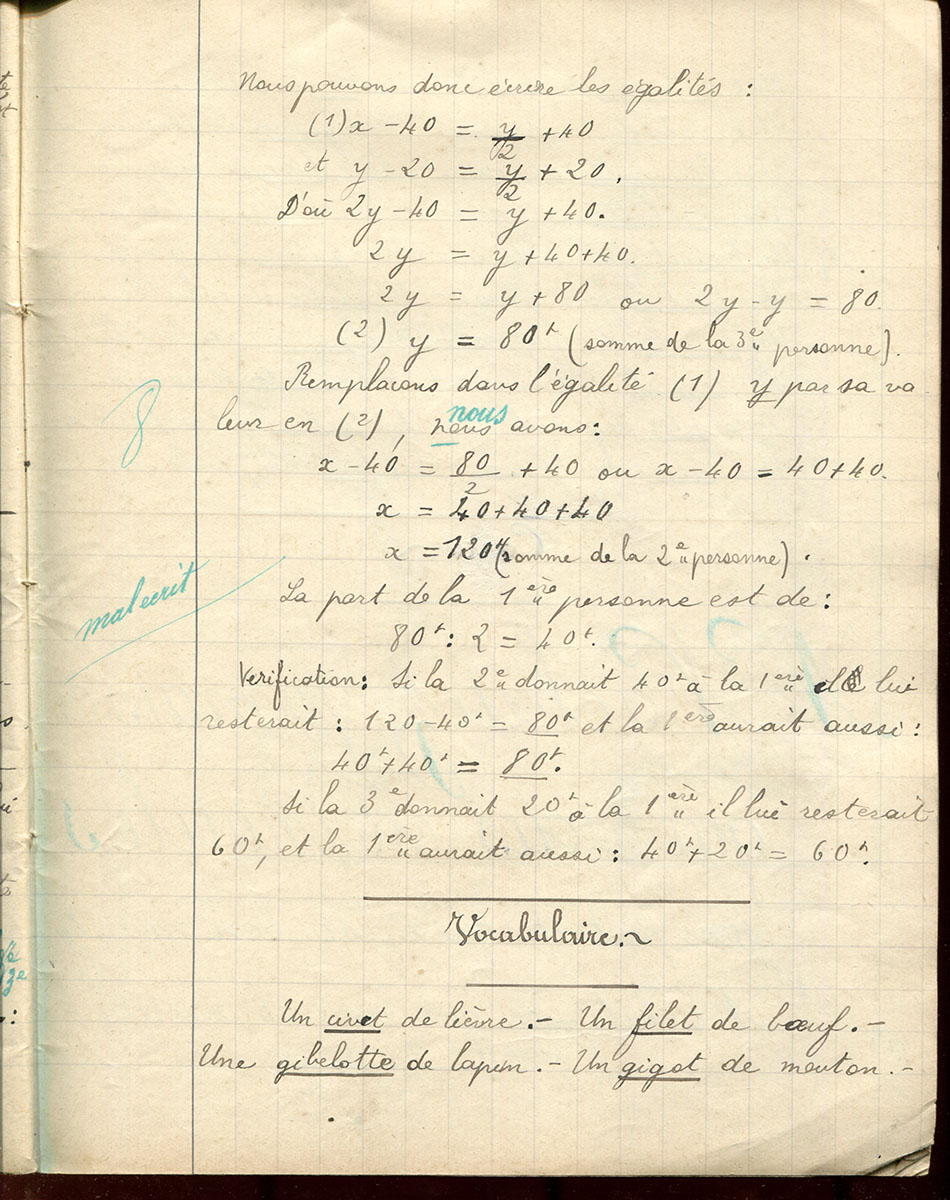 Nous pouvons donc écrire les égalités :
(1) x - 40 = y/2 + 40
et y - 20 = y/2 + 20.
D'où 2y - 40 = y + 40.
2y = y + 40 + 40.
2y = y + 80 ou 2y - y = 80.
(2) y = 80f (somme de la 3e personne).
Remplacons dans l'égalité (1) y par sa va
8
nous
leur en (2), nous avons :
x - 40 = 80/2 + 40 ou x - 40 = 40 + 40.
x = 40 + 40 + 40
x = 120f (somme de la 2e personne).
mal ecrit
La part de la 1ère personne est de :
80f : 2 = 40f.
Verification : Si la 2e donnait 40f à la 1ère il lui
resterait : 120 - 40f = 80f et la 1ère aurait aussi :
40f + 40f = 80f.
Si la 3e donnait 20f à la 1ère il lui resterait
60f, et la 1ère aurait aussi : 40f + 20f = 60f.
Vocabulaire.~
Un civet de lièvre. - Un filet de bœuf. -
Une gibelotte de lapin. - Un gigot de mouton. -